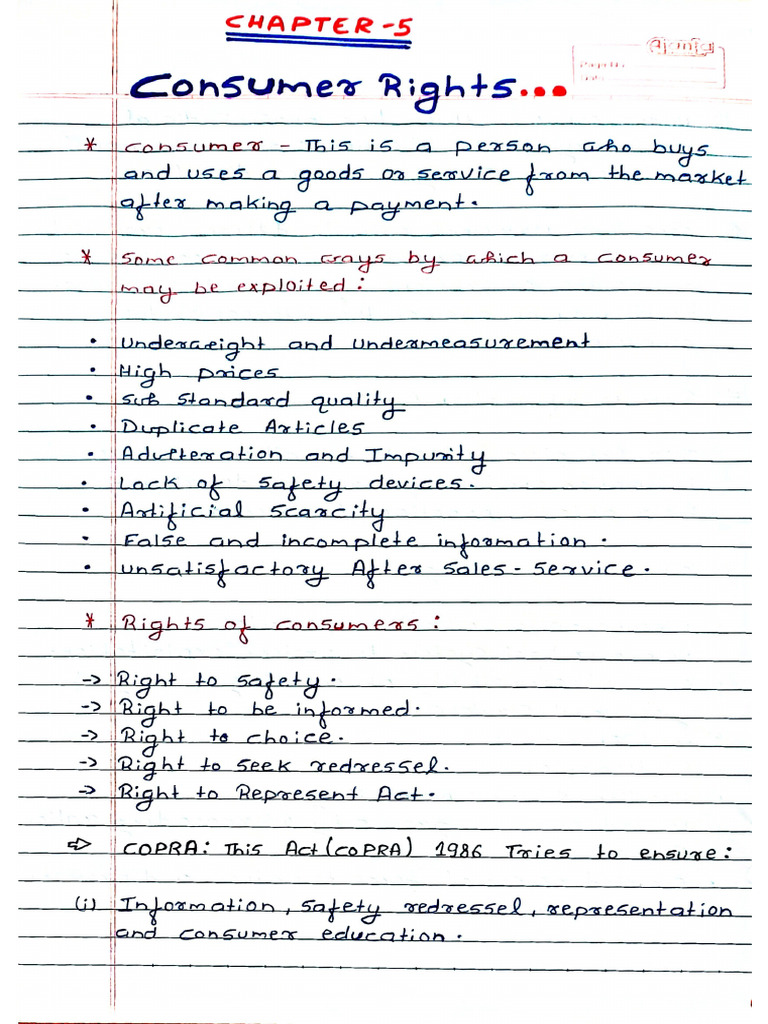 CHAPTER-5
Consumer Rights...
* Consumer - This is a person who buys
and uses a goods or service from the market
after making a payment.
* Some common ways by which a consumer
may be exploited:
• Underweight and undermeasurement
• High prices
• Sub standard quality
• Duplicate Articles
• Adulteration and Impurity
• Lack of safety devices.
• Artificial scarcity
• False and incomplete information.
• unsatisfactory After sales-service.
* Rights of consumers:
-> Right to safety.
-> Right to be informed.
-> Right to choice.
-> Right to seek redressel.
-> Right to Represent Act.
⇨ COPRA: This Act (COPRA) 1986 Tries to ensure:
(i) Information, safety redressel, representation
and consumer education.